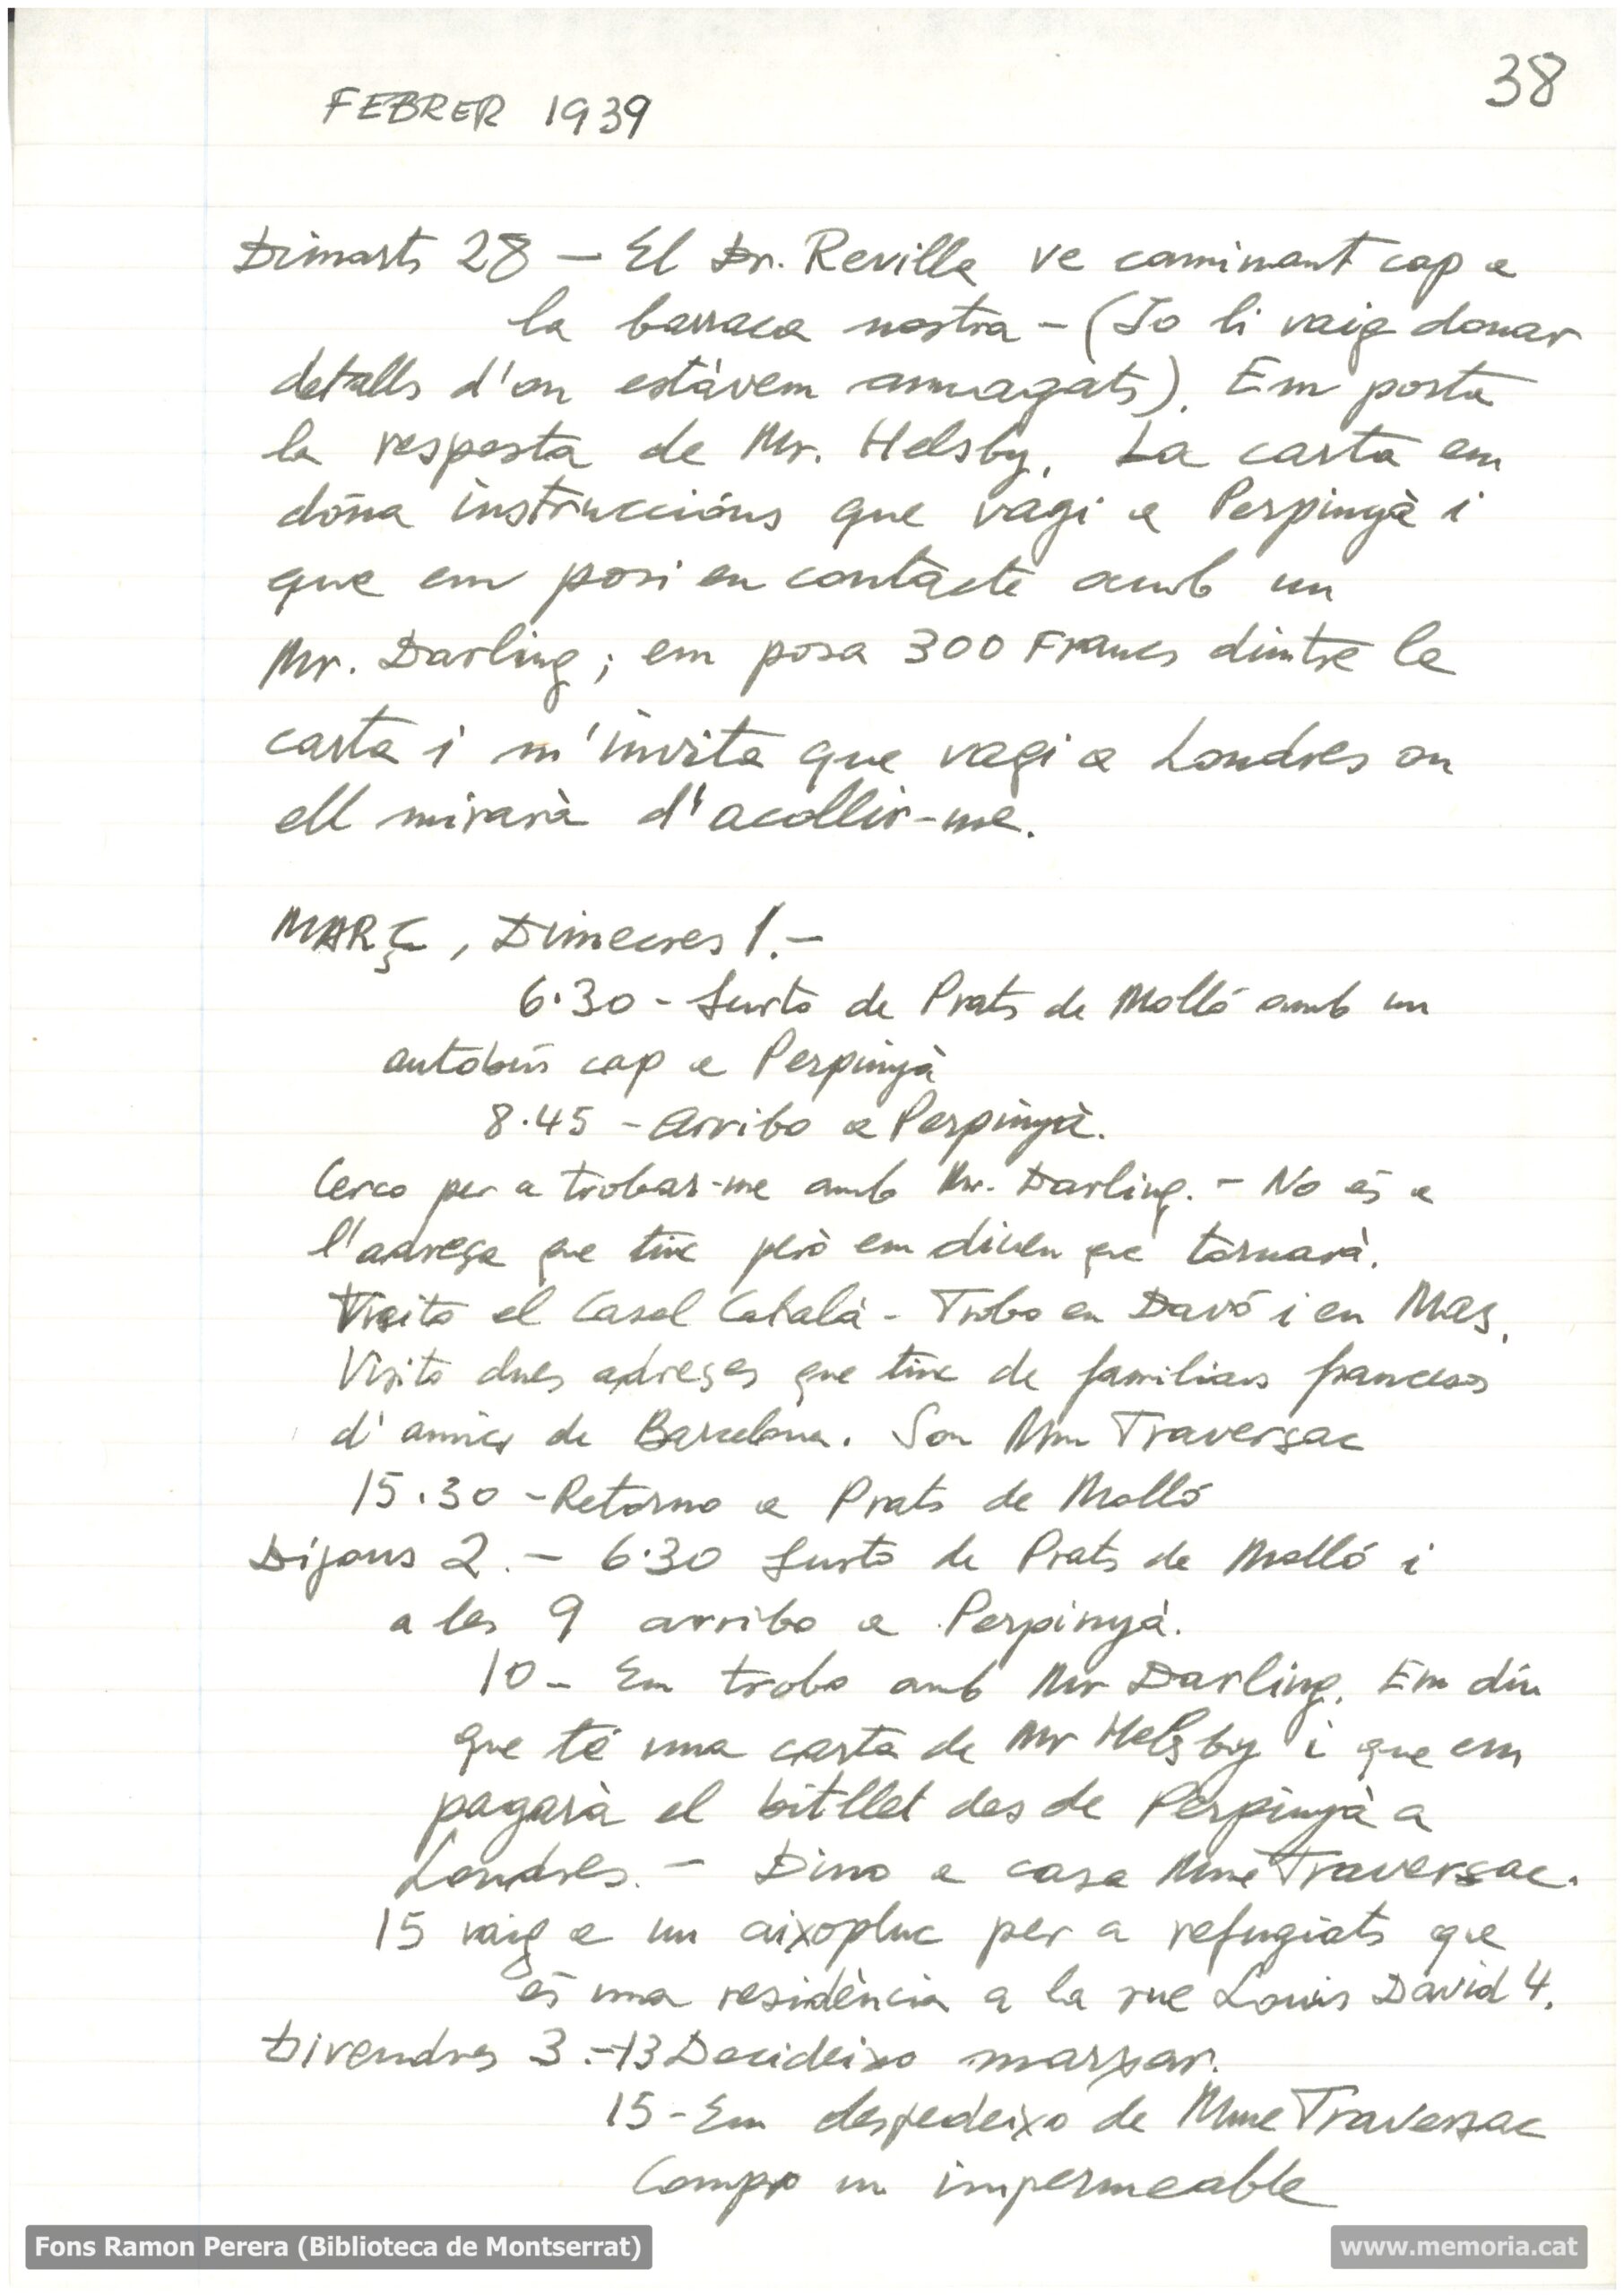 38
FEBRER 1939
Dimarts 28 — El Dr. Revilla ve caminant cap a
la barraca nostra - (Jo li vaig donar
detalls d'on estàvem amagats). Em porta
la resposta de Mr. Helsby. La carta em
dóna instruccións que vagi a Perpinyà i
que em posi en contacte amb un
Mr. Darling; em posa 300 Francs dintre la
carta i m'invita que vagi a Londres on
ell mirarà d'acollir-me.
MARÇ, Dimecres 1.-
6.30 - Surto de Prats de Molló amb un
autobús cap a Perpinyà
8.45 - Arribo a Perpinyà.
Cerco per a trobar-me amb Mr. Darling. - No és a
l'adreça que tinc però em diuen que tornarà.
Visito el Casal Català - Trobo en Davó i en Mas.
Visito dues adreçes que tinc de familiars francesos
d'amics de Barcelona. Son Mm Traversac
15.30 - Retorno a Prats de Molló
Dijous 2. - 6.30 Surto de Prats de Molló i
a les 9 arribo a Perpinyà.
10 - Em trobo amb Mr Darling. Em diu
que té una carta de Mr Helsby i que em
pagarà el bitllet des de Perpinyà a
Londres. - Dino a casa Mme Traversac.
15 vaig a un aixopluc per a refugiats que
és una residència a la rue Louis David 4.
Divendres 3.-13 Decideixo marxar.
15 - Em despedeixo de Mme Traversac
Compro un impermeable
Fons Ramon Perera (Biblioteca de Montserrat)
www.memoria.cat